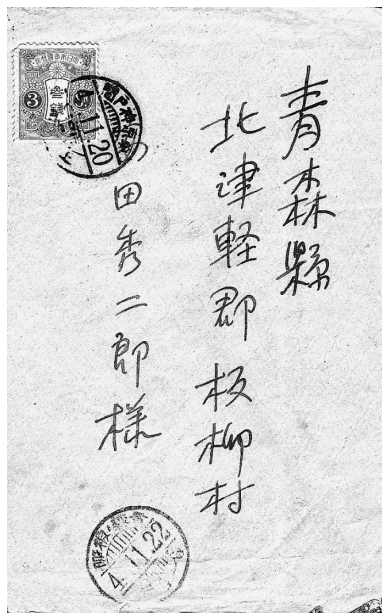 青森縣
北津軽郡板柳村
田秀二郎様
3
11.20
4.11.22